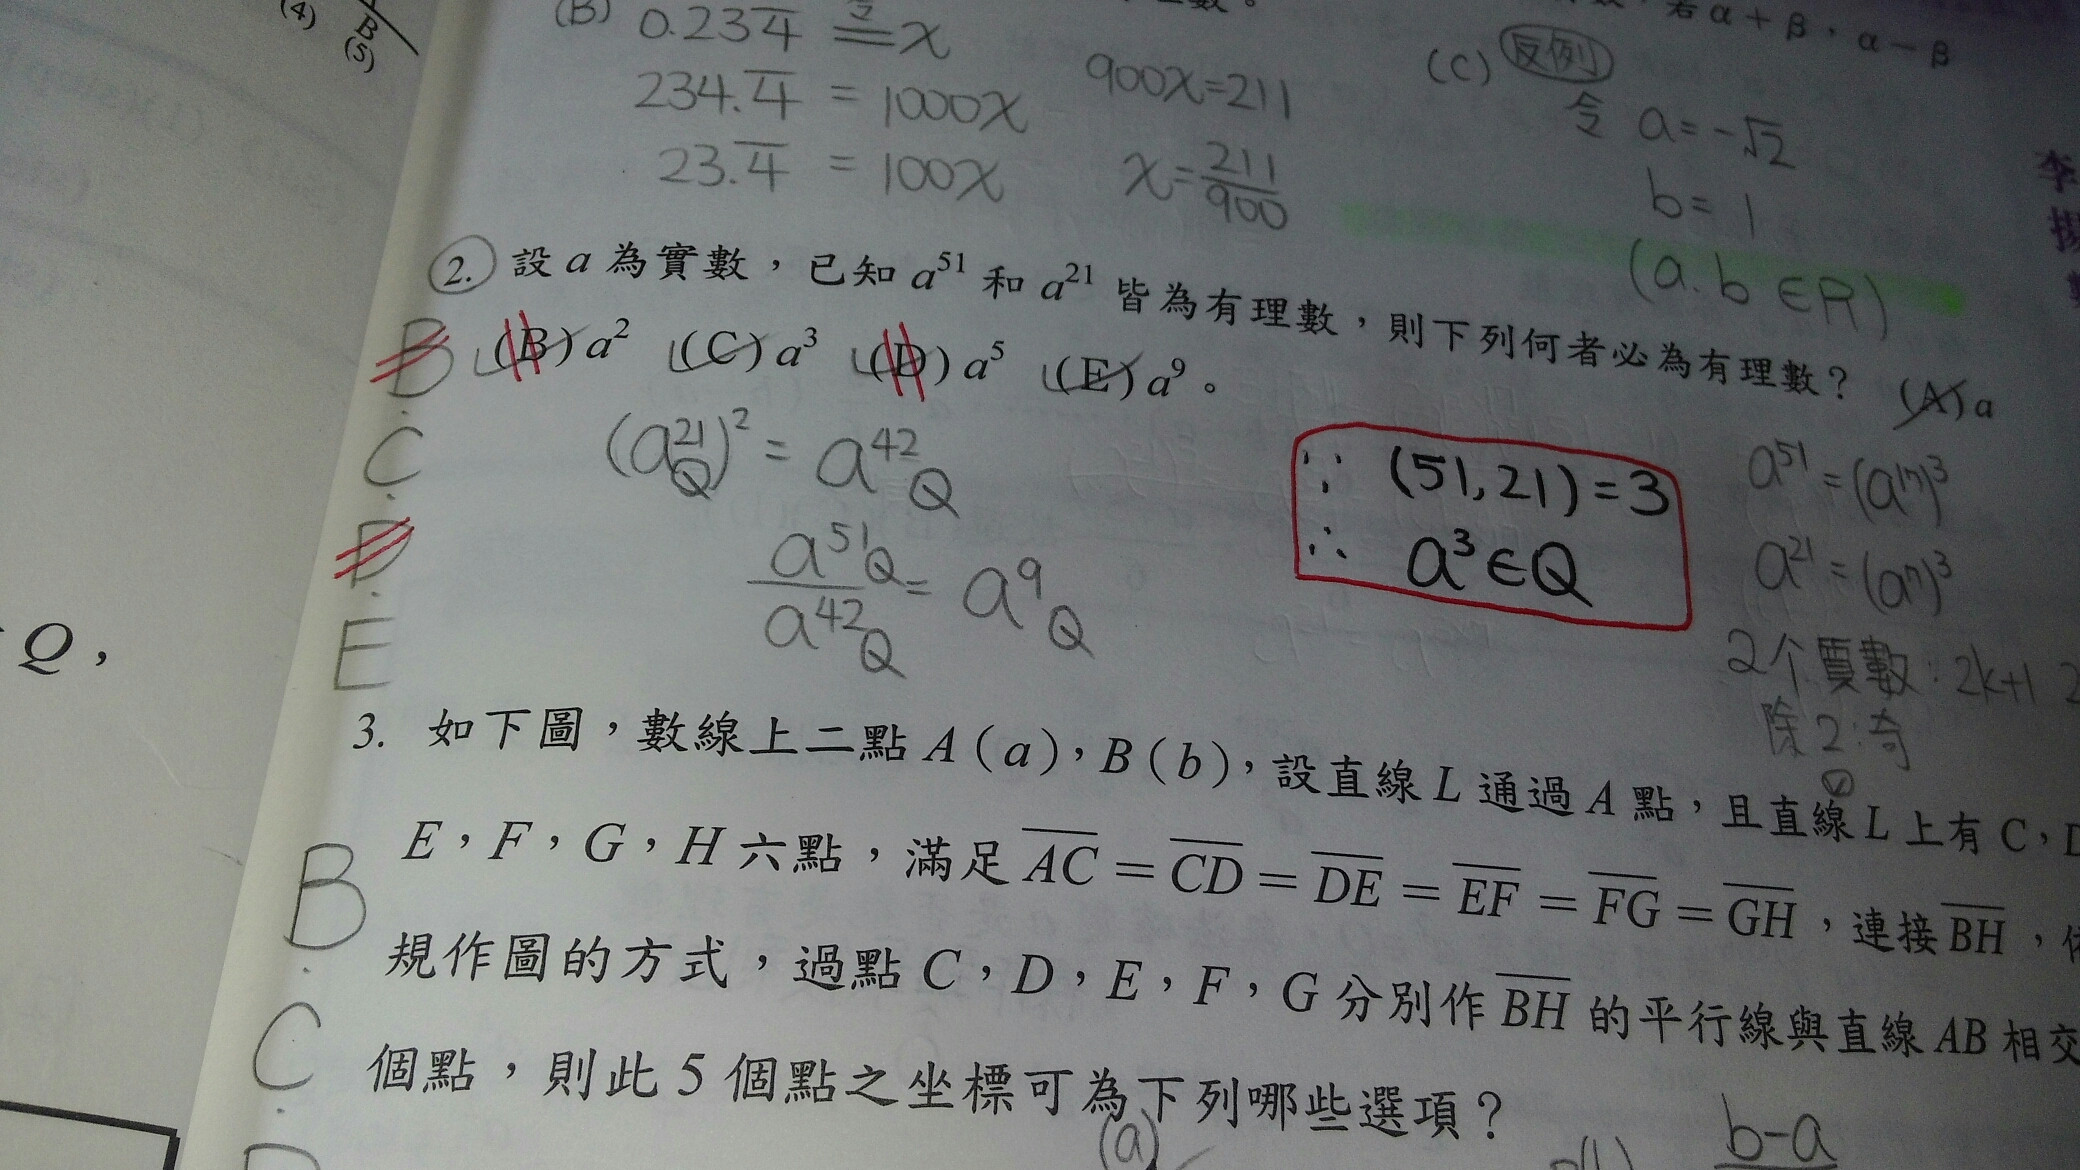 (4)
B
(5)
Q，
(B) 0.23\overline{4} 令= x
234.\overline{4} = 1000x
23.\overline{4} = 100x
900x=211
x=211/900
若 α + β，α − β
(C) 反例
令 a=-√2
b= 1
(a.b ∈R)
李
2. 設 a 為實數，已知 a^51 和 a^21 皆為有理數，則下列何者必為有理數？ (A) a
(B) a^2 (C) a^3 (D) a^5 (E) a^9。
B
C
D
E
(a^21 Q)^2 = a^42 Q
a^51 Q / a^42 Q = a^9 Q
∵ (51,21)=3
∴ a^3∈Q
a^51=(a^17)^3
a^21=(a^7)^3
2个 實數: 2k+1 2
除2:奇
3. 如下圖，數線上二點 A(a)，B(b)，設直線 L 通過 A 點，且直線 L 上有 C，D
E，F，G，H 六點，滿足 \overline{AC} = \overline{CD} = \overline{DE} = \overline{EF} = \overline{FG} = \overline{GH}，連接 \overline{BH}，
規作圖的方式，過點 C，D，E，F，G 分別作 \overline{BH} 的平行線與直線 AB 相交
個點，則此 5 個點之坐標可為下列哪些選項？
B
C
(a)
b-a